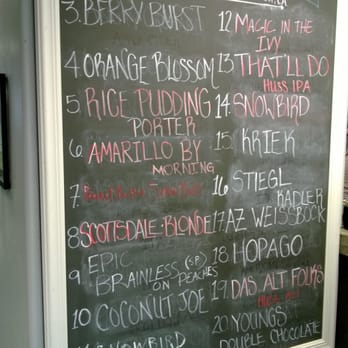 3. BERRY BURST
4. ORANGE BLOSSOM
5. RICE PUDDING
PORTER
6. AMARILLO BY
MORNING
7
8 SCOTTSDALE BLONDE
9 EPIC (SP)
BRAINLESS ON PEACHES
10 COCONUT JOE
SNOWBIRD
12 MAGIC IN THE
IVY
13. THAT'LL DO
HUSS IPA
14. SNOWBIRD
15. KRIEK
16 STIEGL
RADLER
17 AZ WEISSBOCK
18 HOPAGO
19. DAS ALT FOLKS
20 YOUNGS
DOUBLE CHOCOLATE